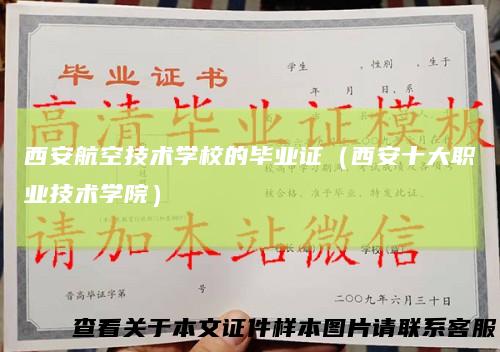 毕业证书
学生　，性别　，生于
年　月　日、系
高清毕业证模板
西安航空技术学校的毕业证（西安十大职
业技术学院）
核合格、准予毕业、特发此证。
请加本站微信
学校（章）
普高毕证字第　号
二〇〇九年六月三十日
查看关于本文证件样本图片请联系客服